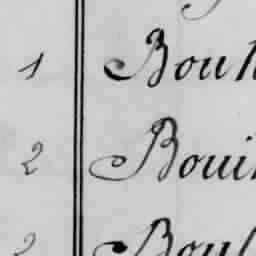 1 Bouh
2 Boui
2 Boul